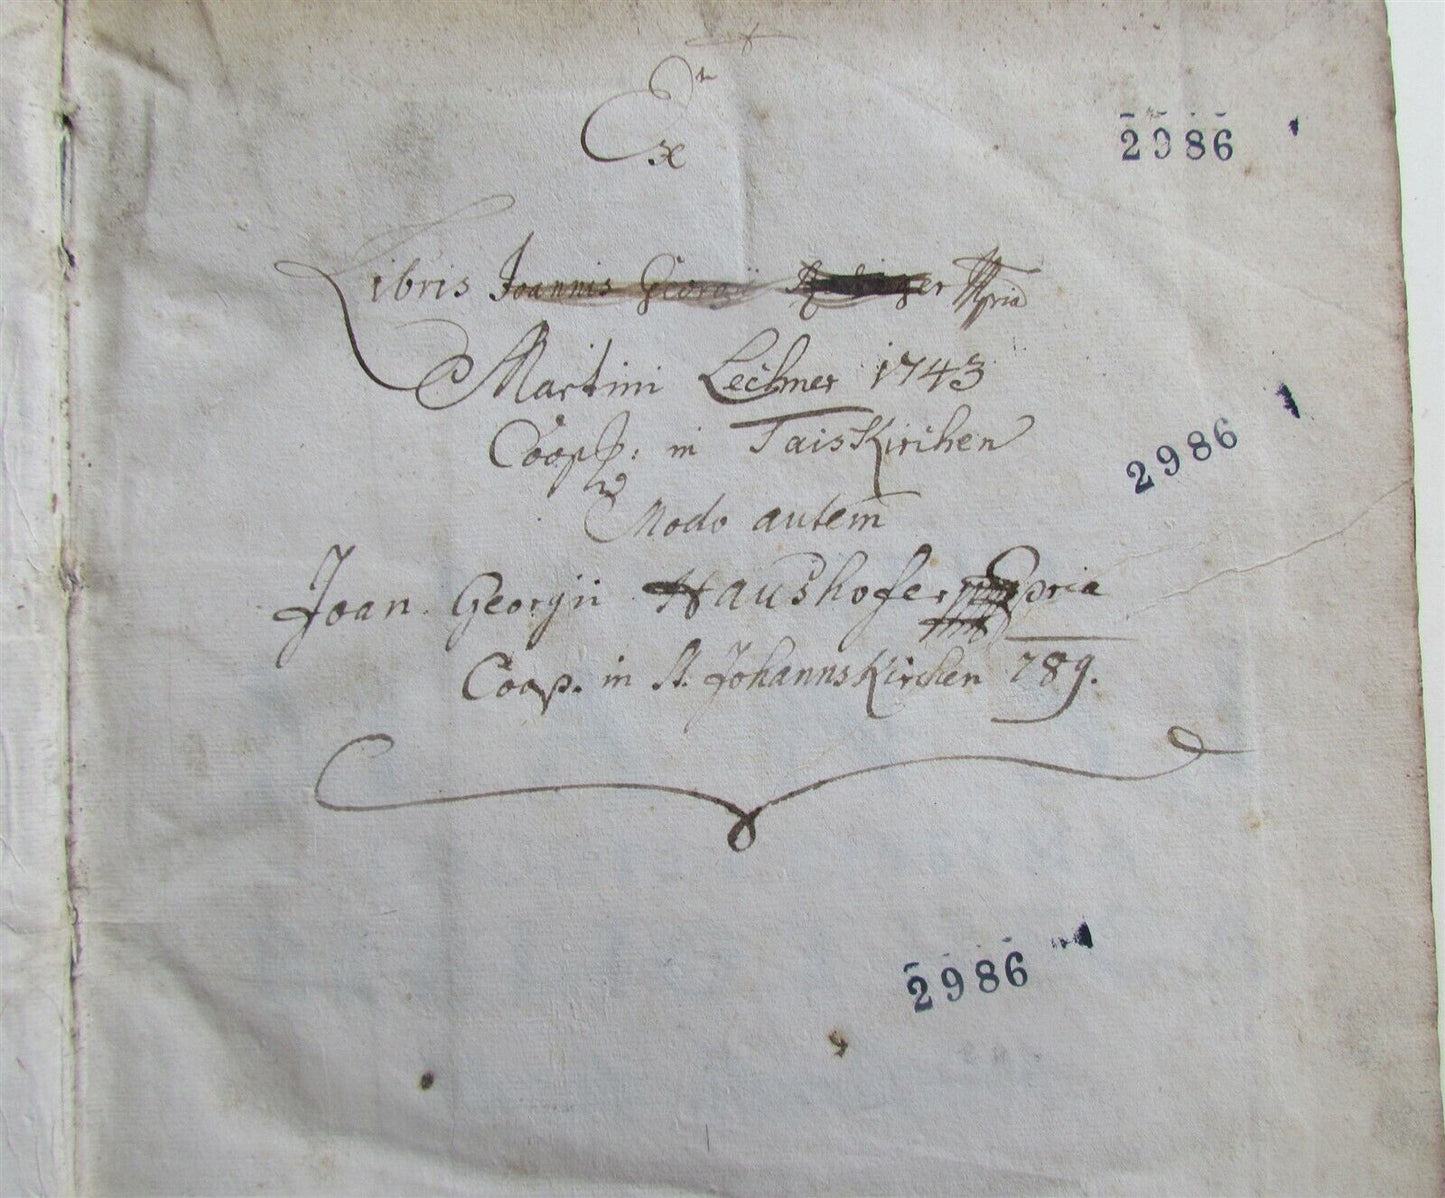 Ex
2986
Libris Joannis Georgii
Martini Lechner 1743
2986
Coop: in Taiskirchen
Modo autem
Joan. Georgii Haushofer pria
Coop. in St. Johannskirchen 789.
2986